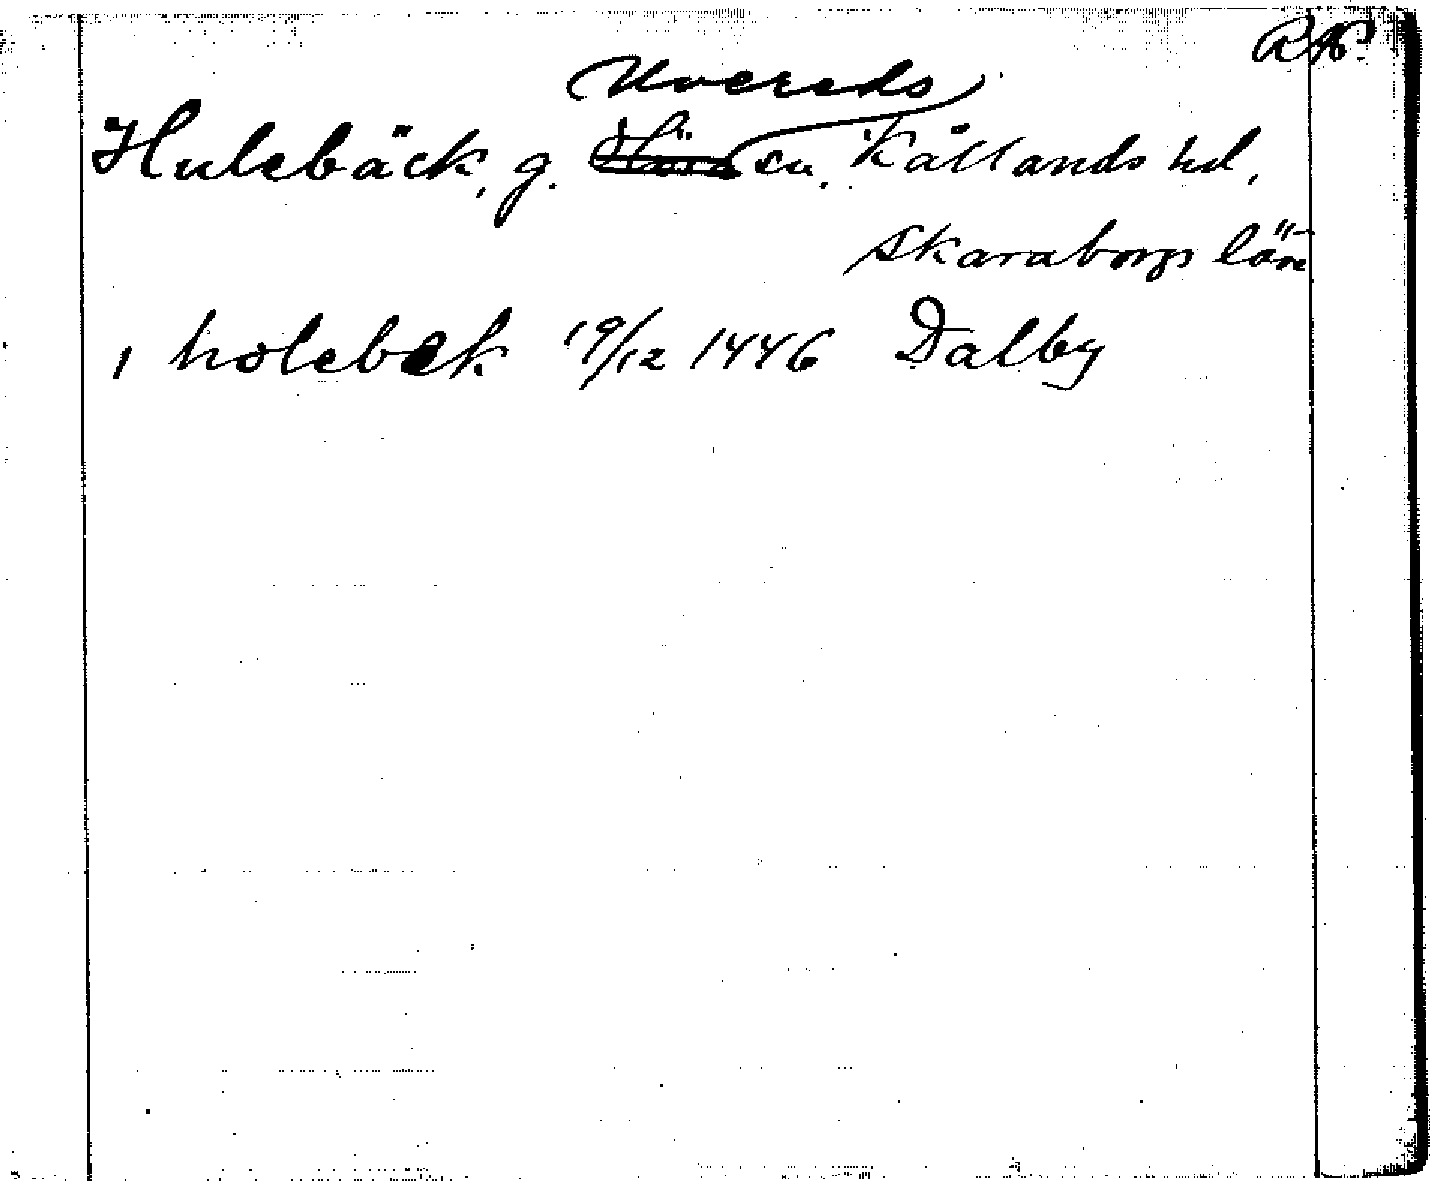 RAP.
Uvereds
Hulebäck, g. sn. Kållands hd,
Skaraborgs län
i holebek 19/12 1446 Dalby